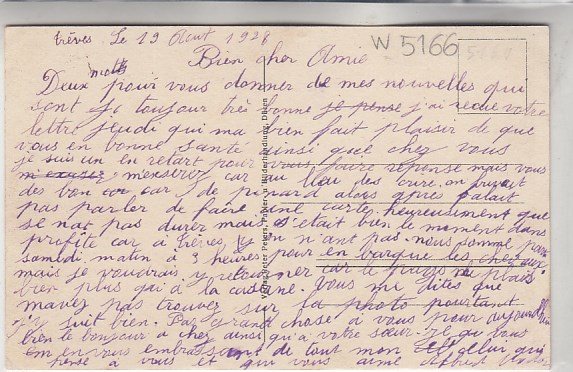 Trêves. Le 19 Aout 1928
W 5166
Bien cher Amie
Deux mots pour vous donner de mes nouvelles qui
sont toujour très bonne je pense j'ai recue votre
lettre jeudi qui ma bien fait plaisir de que
vous en bonne santé ainsi que chez vous
je suis un en retart pour vous faire réponse mais vous
m'excuser car au lieu des
des bon car de pinard alors après
pas parler de faire une carte heureusement que
se na pas durer mais c'était bien le moment dans
profite car à Trêves y en n'ant pas. nous somme
samedi matin à 3 heures pour en barque les chevaux
mais je voudrais y retourner car le pays me plais
bien plus qui a la caserne. Vous mi dites que
mavez pas trouvez sur la photo pourtant
j'y suit bien. Pas grand chose à vous pour aujourd'hui
bien le bonjour a chez ainsi qu'a votre sœur.
em en vous embrassant de tout mon celui qui
pense a vous et qui vous aime
Verlag Peter Bilderhandlung